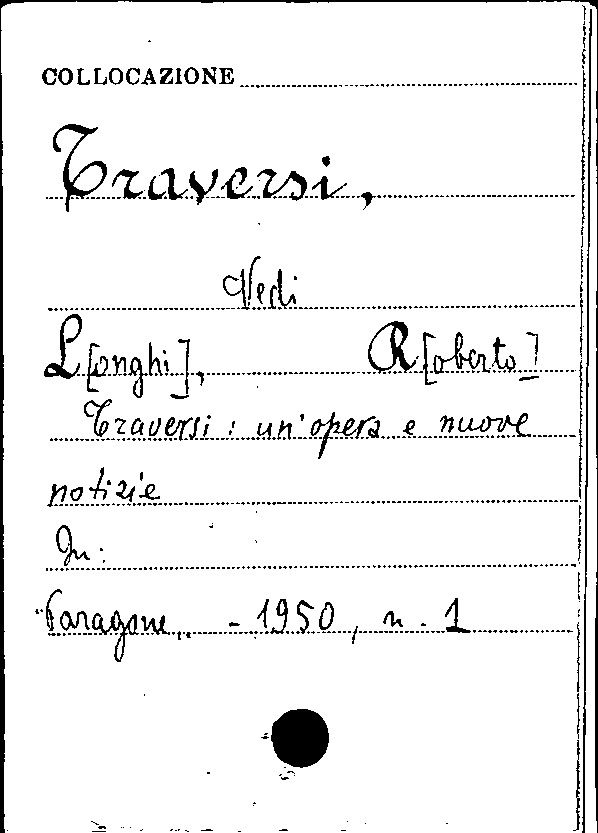 COLLOCAZIONE
Traversi,
Vedi
L[onghi], R[oberto]
Traversi : un'opera e nuove
notizie
In:
"Paragone" - 1950, n. 1